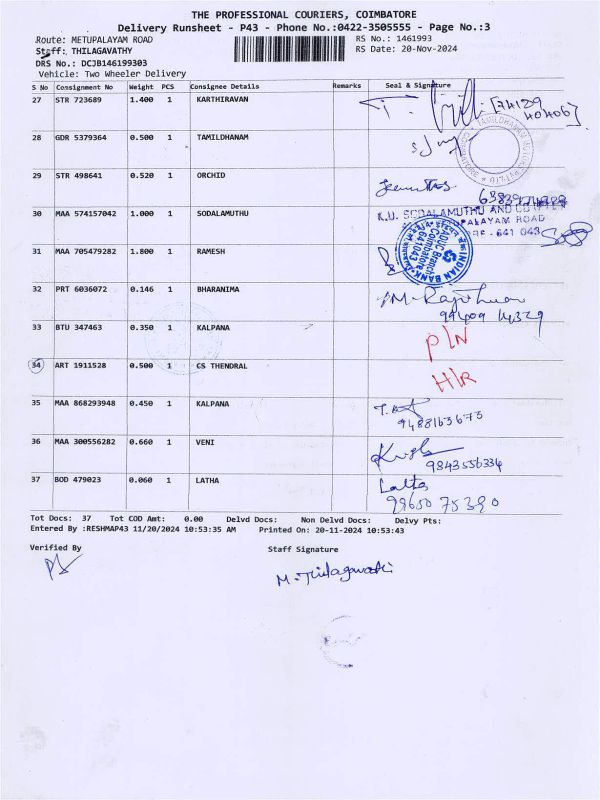 THE PROFESSIONAL COURIERS, COIMBATORE
Delivery Runsheet - P43 - Phone No.:0422-3505555 - Page No.:3
Route: METUPALAYAM ROAD
RS No.: 1461993
Staff: THILAGAVATHY
RS Date: 20-Nov-2024
DRS No.: DCJB146199303
Vehicle: Two Wheeler Delivery
S No Consignment No Weight PCS Consignee Details Remarks Seal & Signature
27 STR 723689 1.400 1 KARTHIRAVAN
28 GDR 5379364 0.500 1 TAMILDHANAM
29 STR 498641 0.520 1 ORCHID
30 MAA 574157042 1.000 1 SODALAMUTHU K.U. SODALAMUTHU AND CO
PALAYAM ROAD
641 043
31 MAA 705479282 1.800 1 RAMESH INDIAN BANK
ADUC Branch
Coimbatore
641043
32 PRT 6036072 0.146 1 BHARANIMA
33 BTU 347463 0.350 1 KALPANA P/N
34 ART 1911528 0.500 1 CS THENDRAL H/R
35 MAA 868293948 0.450 1 KALPANA
9488163673
36 MAA 300556282 0.660 1 VENI
9843556334
37 BOD 479023 0.060 1 LATHA Latha
98650 75390
Tot Docs: 37 Tot COD Amt: 0.00 Delvd Docs: Non Delvd Docs: Delvy Pts:
Entered By :RESHMAP43 11/20/2024 10:53:35 AM Printed On: 20-11-2024 10:53:43
Verified By Staff Signature
M. Thilagavathi